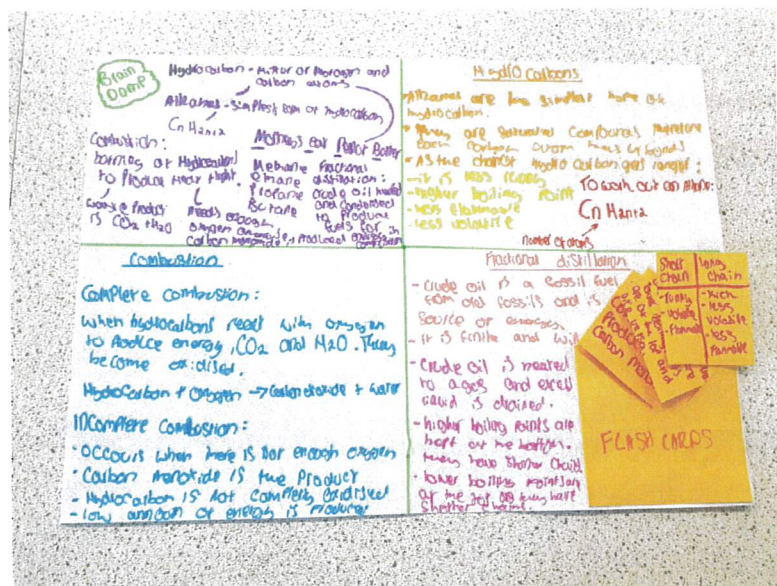 Brain
Dump
Hydrocarbon - mixtur of Hydrogen and
carbon atoms
Alkanes - simplest form of hydrocarbon
CnH2n+2
Mothers eat Butter
Combustion:
burning of Hydrocarbons
to Produce Heat + light
Product
is CO2 + H2O
Needs enough
oxygen
carbon monoxide
Methane
ethane
Propane
Butane
Fractional
distillation:
crude oil heated
and condensed
to Produce
fuels for
Hydrocarbons
- Alkanes are the simplest type of
hydrocarbon.
- They are saturated compounds therefore
each carbon
- As the chain of hydrocarbon gets longer:
- it is less runny
- higher boiling Point
- less flammable
- less volatile
To work out an Alkane:
CnH2n+2
number of atoms
Combustion
Complete combustion:
when hydrocarbons react with oxygen
to Produce energy, CO2 and H2O. They
become oxidised.
Hydrocarbon + Oxygen → Carbon dioxide + water
Incomplete combustion:
- occurs when there is not enough oxygen
- Carbon monoxide is the Product
- Hydrocarbon is not oxidised
- low amount of energy is Produced
Fractional distillation
- Crude oil is a fossil fuel
from old fossils and is
source of energy.
- it is finite and will
- Crude oil is heated
to and
liquid is drained.
- higher boiling Points are
at the bottom.
they have
- lower boiling Points are
at the top, as they have
Short
chain
- runny
long
chain
- thick
- less
volatile
- less
flammable
Produces
Carbon
FLASH CARDS